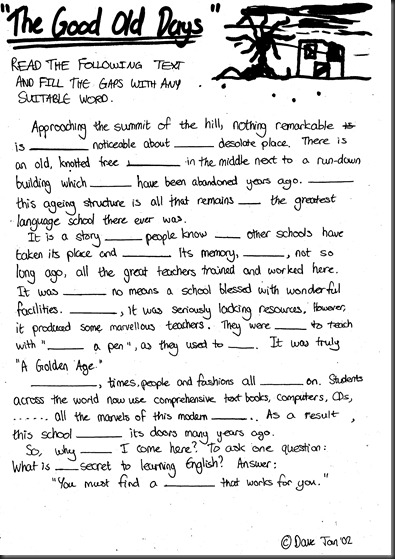 "The Good Old Days"
READ THE FOLLOWING TEXT
AND FILL THE GAPS WITH ANY
SUITABLE WORD.
Approaching the summit of the hill, nothing remarkable
is ________ noticeable about ______ desolate place. There is
an old, knotted tree ________ in the middle next to a run-down
building which ______ have been abandoned years ago. ______
this ageing structure is all that remains ___ the greatest
language school there ever was.
It is a story _____ people know ___ other schools have
taken its place and ______. Its memory, ______, not so
long ago, all the great teachers trained and worked here.
It was ______ no means a school blessed with wonderful
facilities. ______, it was seriously lacking resources, However,
it produced some marvellous teachers. They were _____ to teach
with "_____ a pen", as they used to ____. It was truly
"A Golden Age."
________, times, people and fashions all ______ on. Students
across the world now use comprehensive text books, computers, CDs,
...... all the marvels of this modern ______.. As a result,
this school ______ its doors many years ago.
So, why ____ I come here? To ask one question:
What is ___ secret to learning English? Answer:
"You must find a ______ that works for you."
© Dave Tan '02